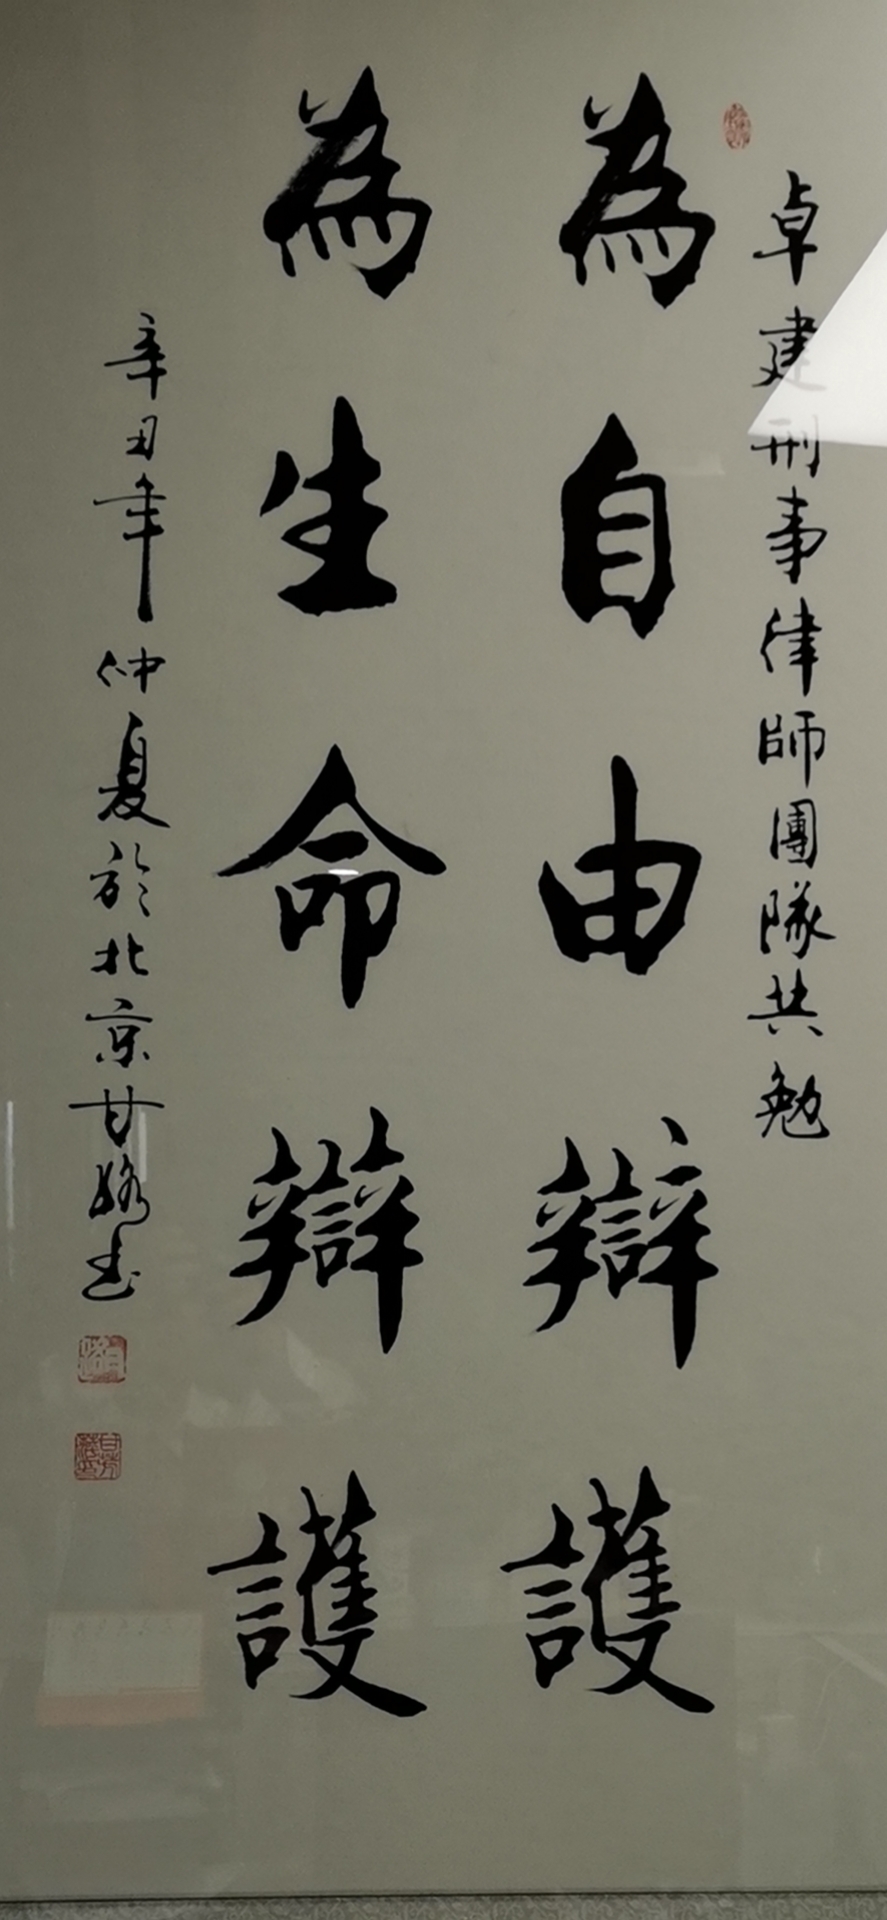 卓建刑事律師團隊共勉
為自由辯護
為生命辯護
辛丑年仲夏於北京甘路書